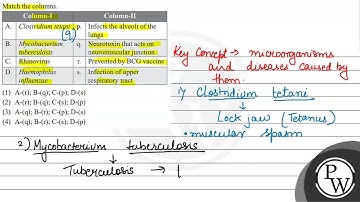 Match the columns.
Column-I Column-II
A. Clostridium tetani p. Infects the alveoli of the lungs
(q)
B. Mycobacterium tuberculosis q. Neurotoxin that acts on neuromuscular junction
C. Rhinovirus r. Prevented by BCG vaccine
D. Haemophilus influenzae s. Infection of upper respiratory tract.
(1) A-(r); B-(q); C-(p); D-(s)
(2) A-(q); B-(r); C-(p); D-(s)
(3) A-(r); B-(q); C-(s); D-(p)
(4) A-(q); B-(r); C-(s); D-(p)
Key Concept → microorganisms
and diseases caused by
them.
1) Clostridium tetani
↓
Lock jaw (Tetanus)
• muscular spasm
2) Mycobacterium tuberculosis
↓
Tuberculosis →
PW